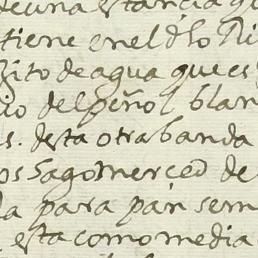 de una estancia q
tiene en el dho Ri
zito de agua que es
io del peñol blan
s. desta otra banda
os hago merced de
la para pan sem
esta como media